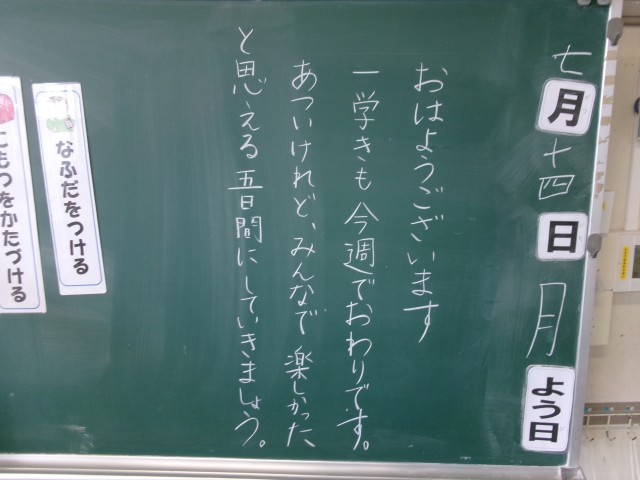 七月十四日月よう日
おはようございます
一学きも今週でおわりです。
あついけれど、みんなで楽しかった
と思える五日間にしていきましょう。
なふだをつける
にもつをかたづける